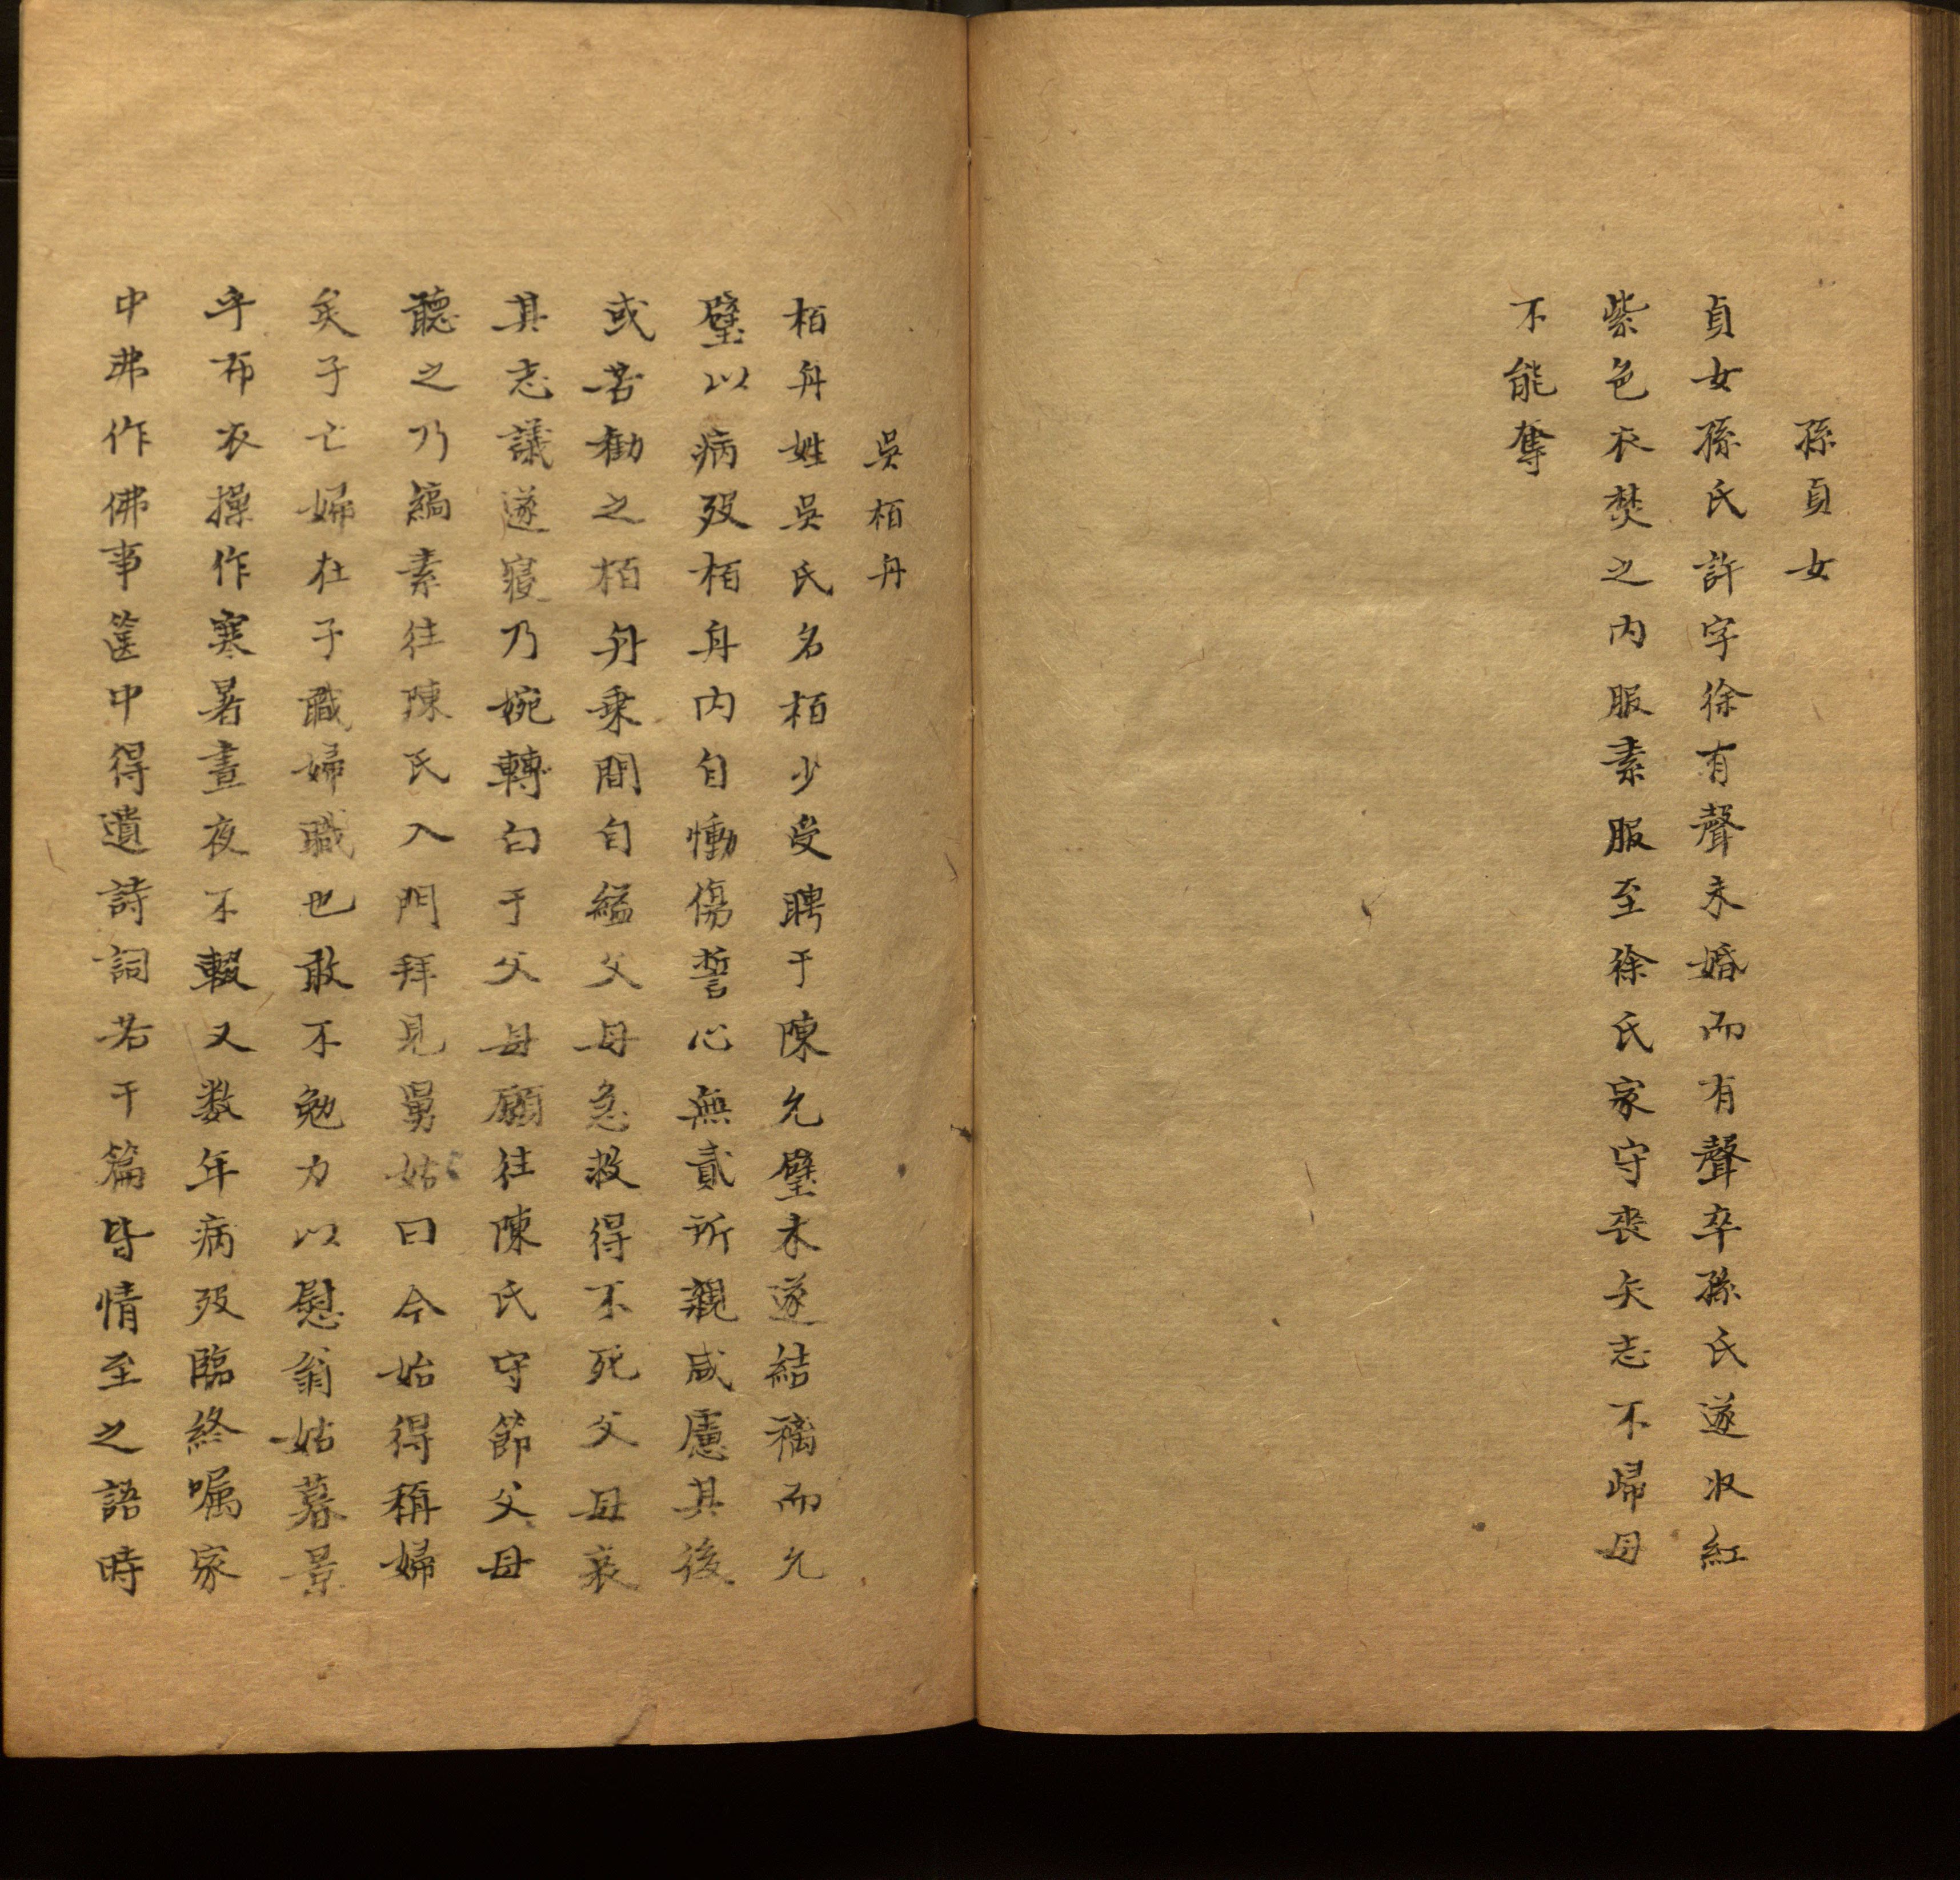 孫貞女
貞女孫氏許字徐有聲未婚而有聲卒孫氏遂收紅
紫色衣焚之内服素服至徐氏家守丧矢志不歸母
不能奪
吳栢舟
栢舟姓吳氏名栢少受聘于陳允璧未遂結褵而允
璧以病歿栢舟内自慟傷誓心無貳所親咸慮其後
或苦勸之栢舟乗間自縊父母急救得不死父母哀
其志議遂寢乃婉轉白于父母願往陳氏守節父母
聽之乃縞素往陳氏入門拜見舅姑曰今始得稱婦
矣子亡婦在子職婦職也敢不勉力以慰翁姑暮景
乎布衣操作寒暑晝夜不輟又数年病歿臨終嘱家
中弗作佛事篋中得遺詩詞若干篇皆情至之語時